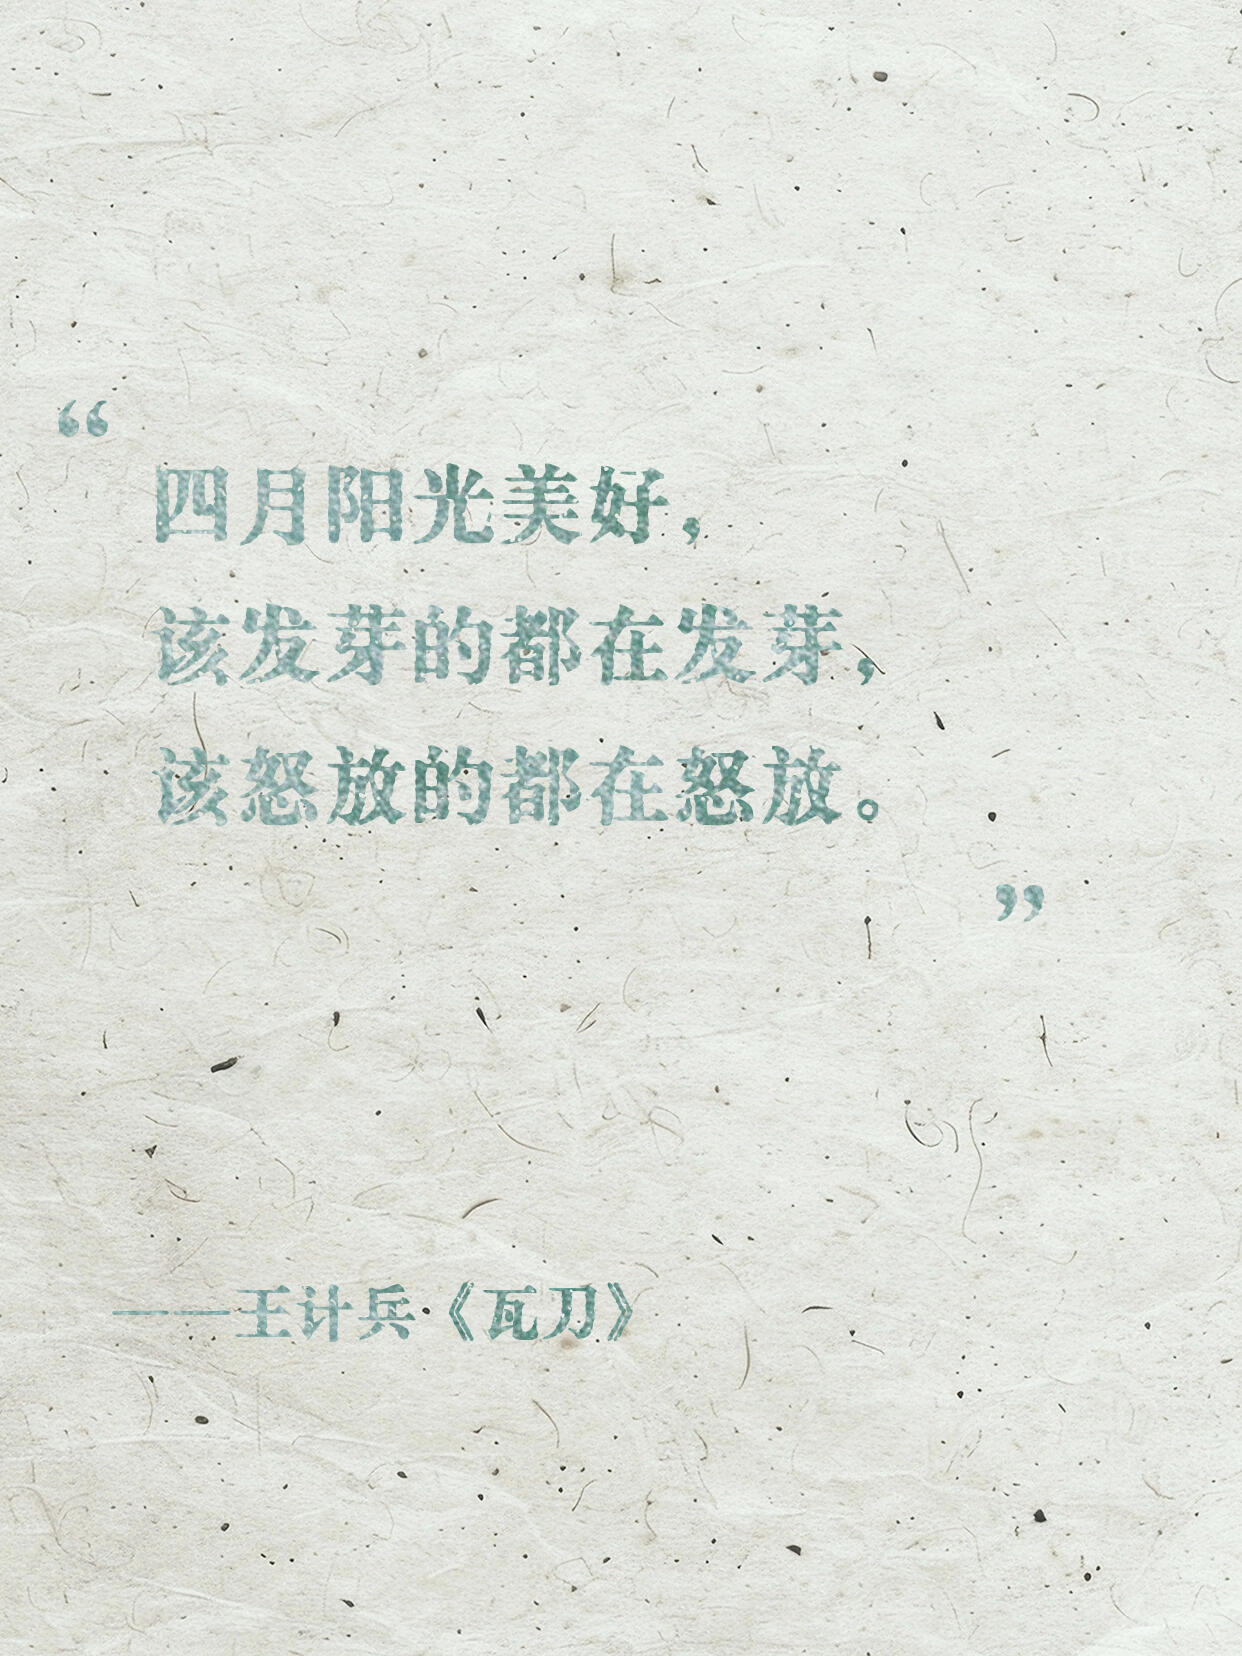 “
四月阳光美好，
该发芽的都在发芽，
该怒放的都在怒放。
”
——王计兵《瓦刀》